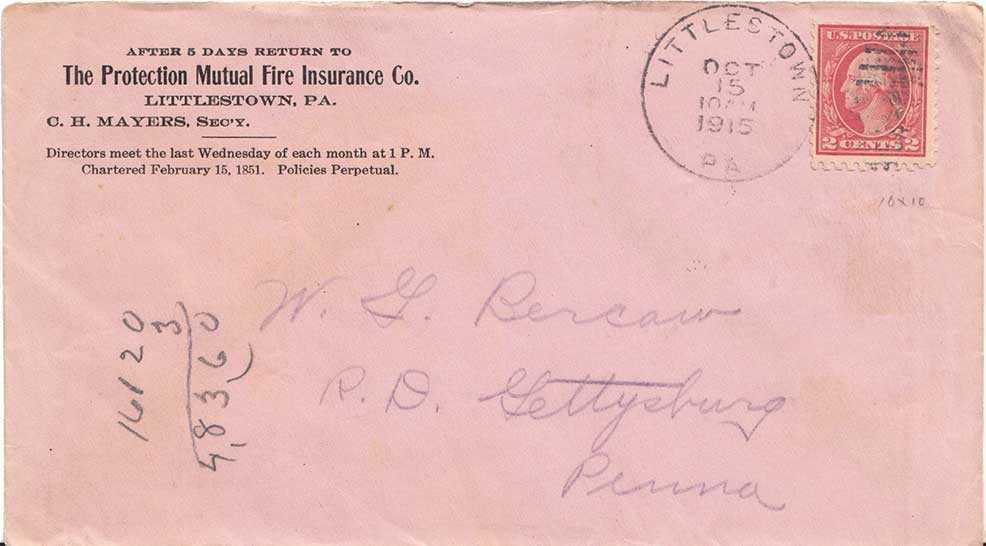 AFTER 5 DAYS RETURN TO
The Protection Mutual Fire Insurance Co.
LITTLESTOWN, PA.
C. H. MAYERS, SEC'Y.
Directors meet the last Wednesday of each month at 1 P. M.
Chartered February 15, 1851. Policies Perpetual.
LITTLESTOWN
OCT
15
10AM
1915
PA
U.S. POSTAGE
2 CENTS 2
10x10
W. G. Bercaw
R. D. Gettysburg
Penna
16120
3
48360